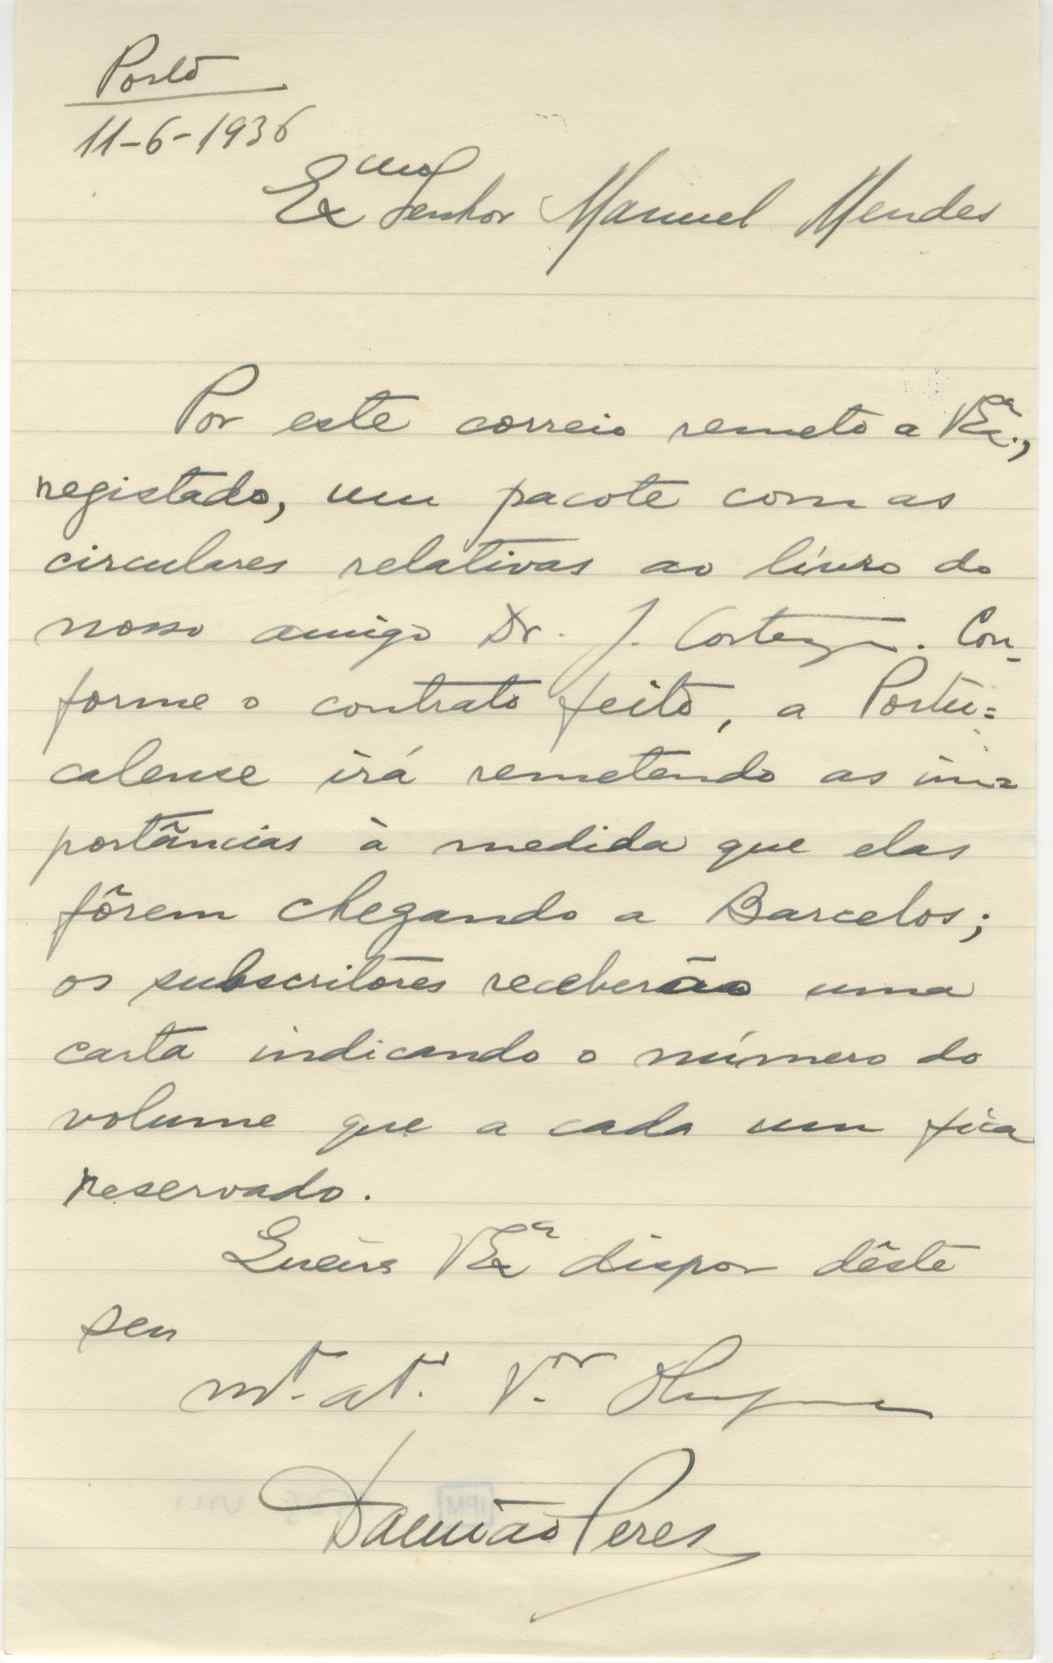 Porto
11-6-1936
Exmo Senhor Manuel Mendes
Por este correio remeto a V Exa.,
registado, um pacote com as
circulares relativas ao livro do
nosso amigo Dr. J. Cortezão. Con-
forme o contrato feito, a Portu=
calense irá remetendo as im=
portâncias à medida que elas
fôrem chegando a Barcelos;
os subscritores receberão uma
carta indicando o número do
volume que a cada um fica
reservado.
Queira V Exa dispor dêste
seu
mt. at. V.or
Damião Peres